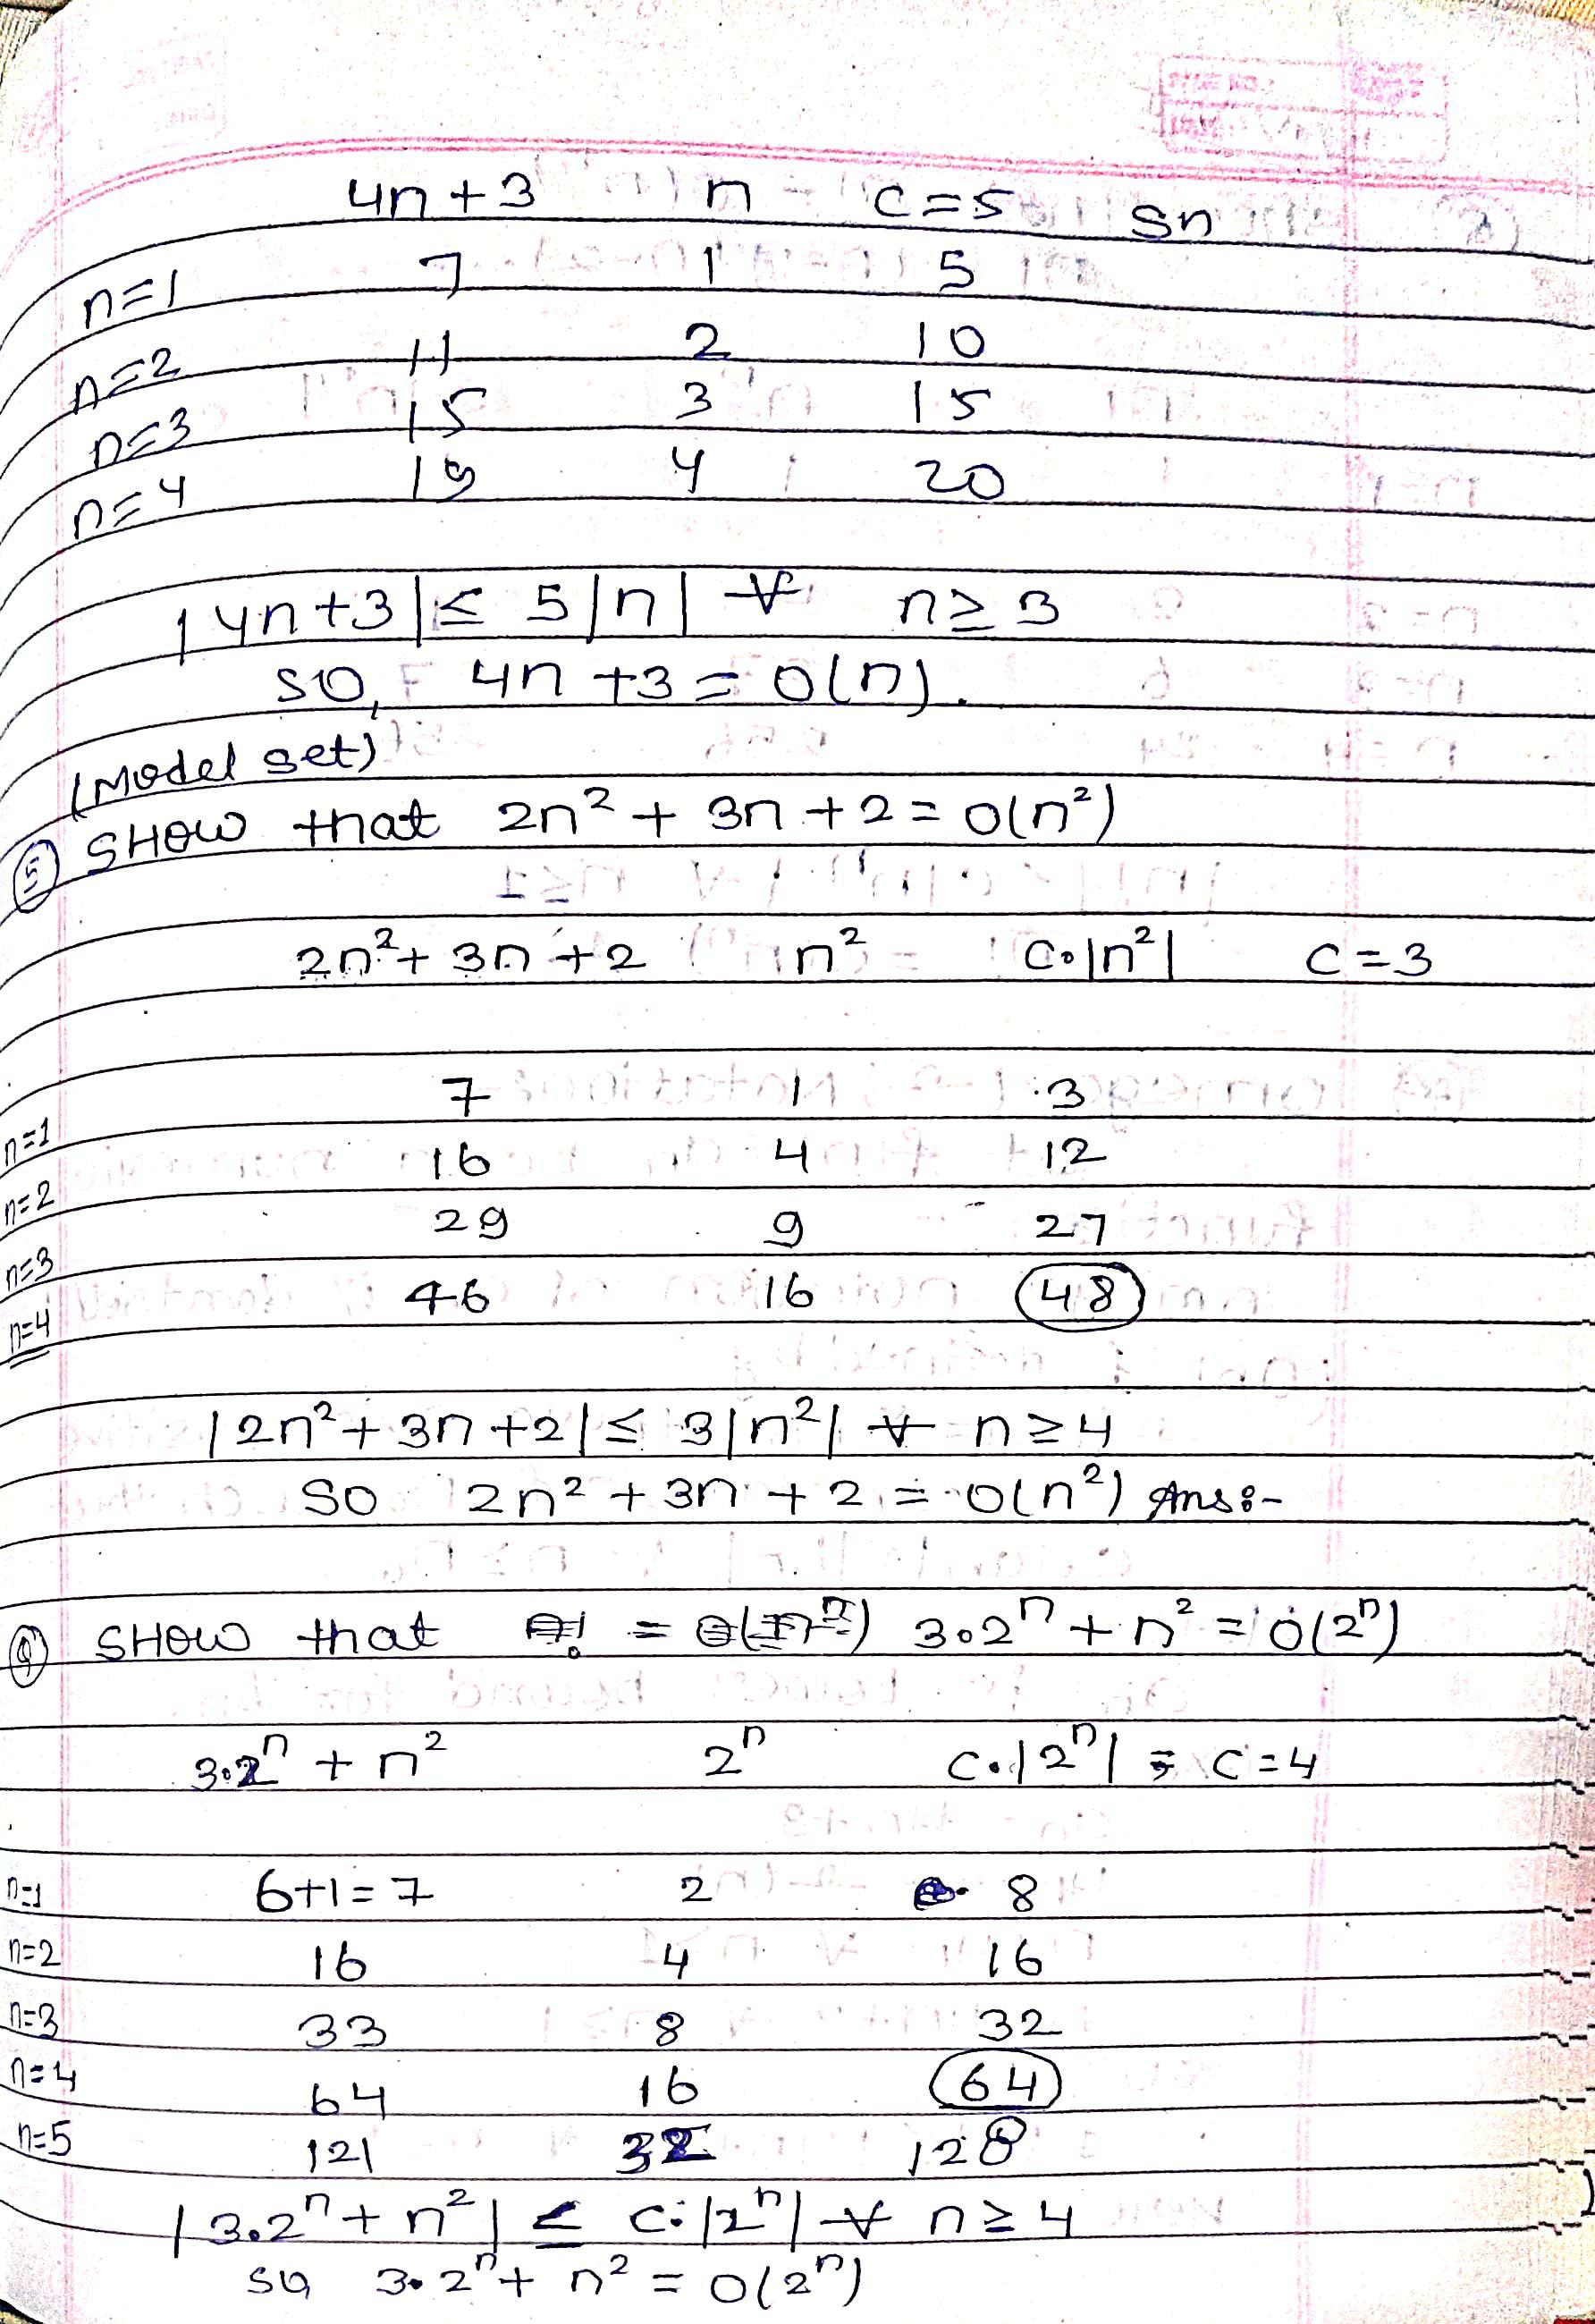 4n+3 n C=5 5n
n=1 7 1 5
n=2 11 2 10
n=3 15 3 15
n=4 19 4 20
|4n+3| ≤ 5|n| ∀ n≥3
SO, 4n+3 = O(n).
(Model set)
⑤ SHOW that 2n² + 3n + 2 = O(n²)
2n² + 3n + 2 n² C.|n²| C=3
n=1 7 1 3
n=2 16 4 12
n=3 29 9 27
n=4 46 16 48
|2n² + 3n + 2| ≤ 3|n²| ∀ n≥4
SO 2n² + 3n + 2 = O(n²) Ans:-
SHOW that 3.2ⁿ + n² = O(2ⁿ)
3.2ⁿ + n² 2ⁿ C.|2ⁿ| = C=4
n=1 6+1=7 2 8
n=2 16 4 16
n=3 33 8 32
n=4 64 16 64
n=5 121 32 128
|3.2ⁿ + n²| ≤ C.|2ⁿ| ∀ n≥4
SO 3.2ⁿ + n² = O(2ⁿ)